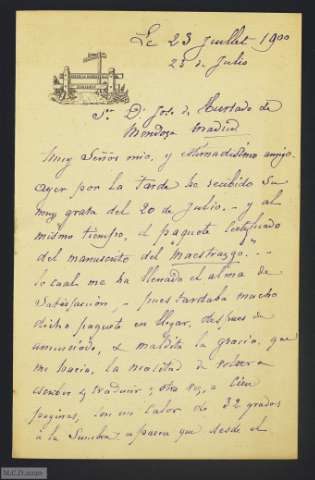 Le 23 juillet 1900
25 de Julio
Sr. Dn. Jose de Hurtado de
Mendoza Madrid
Muy Señor mio, y estimadisimo amigo.
ayer por la tarde he recibido su
muy grata del 20 de Julio. - y al
mismo tiempo, el paquete certificado
del manuscrito del "Maestrazgo"...
lo cual me ha llenado el alma de
satisfaccion, - pues tardaba mucho
dicho paquete en llegar, despues de
anunciado, & maldita la gracia, que
me hacia, la necesidad de volver a
escribir y traducir; otra vez, a cien
paginas, con un calor de 32 grados
a la sombra. aparece que desde el
M.C.D. 2020